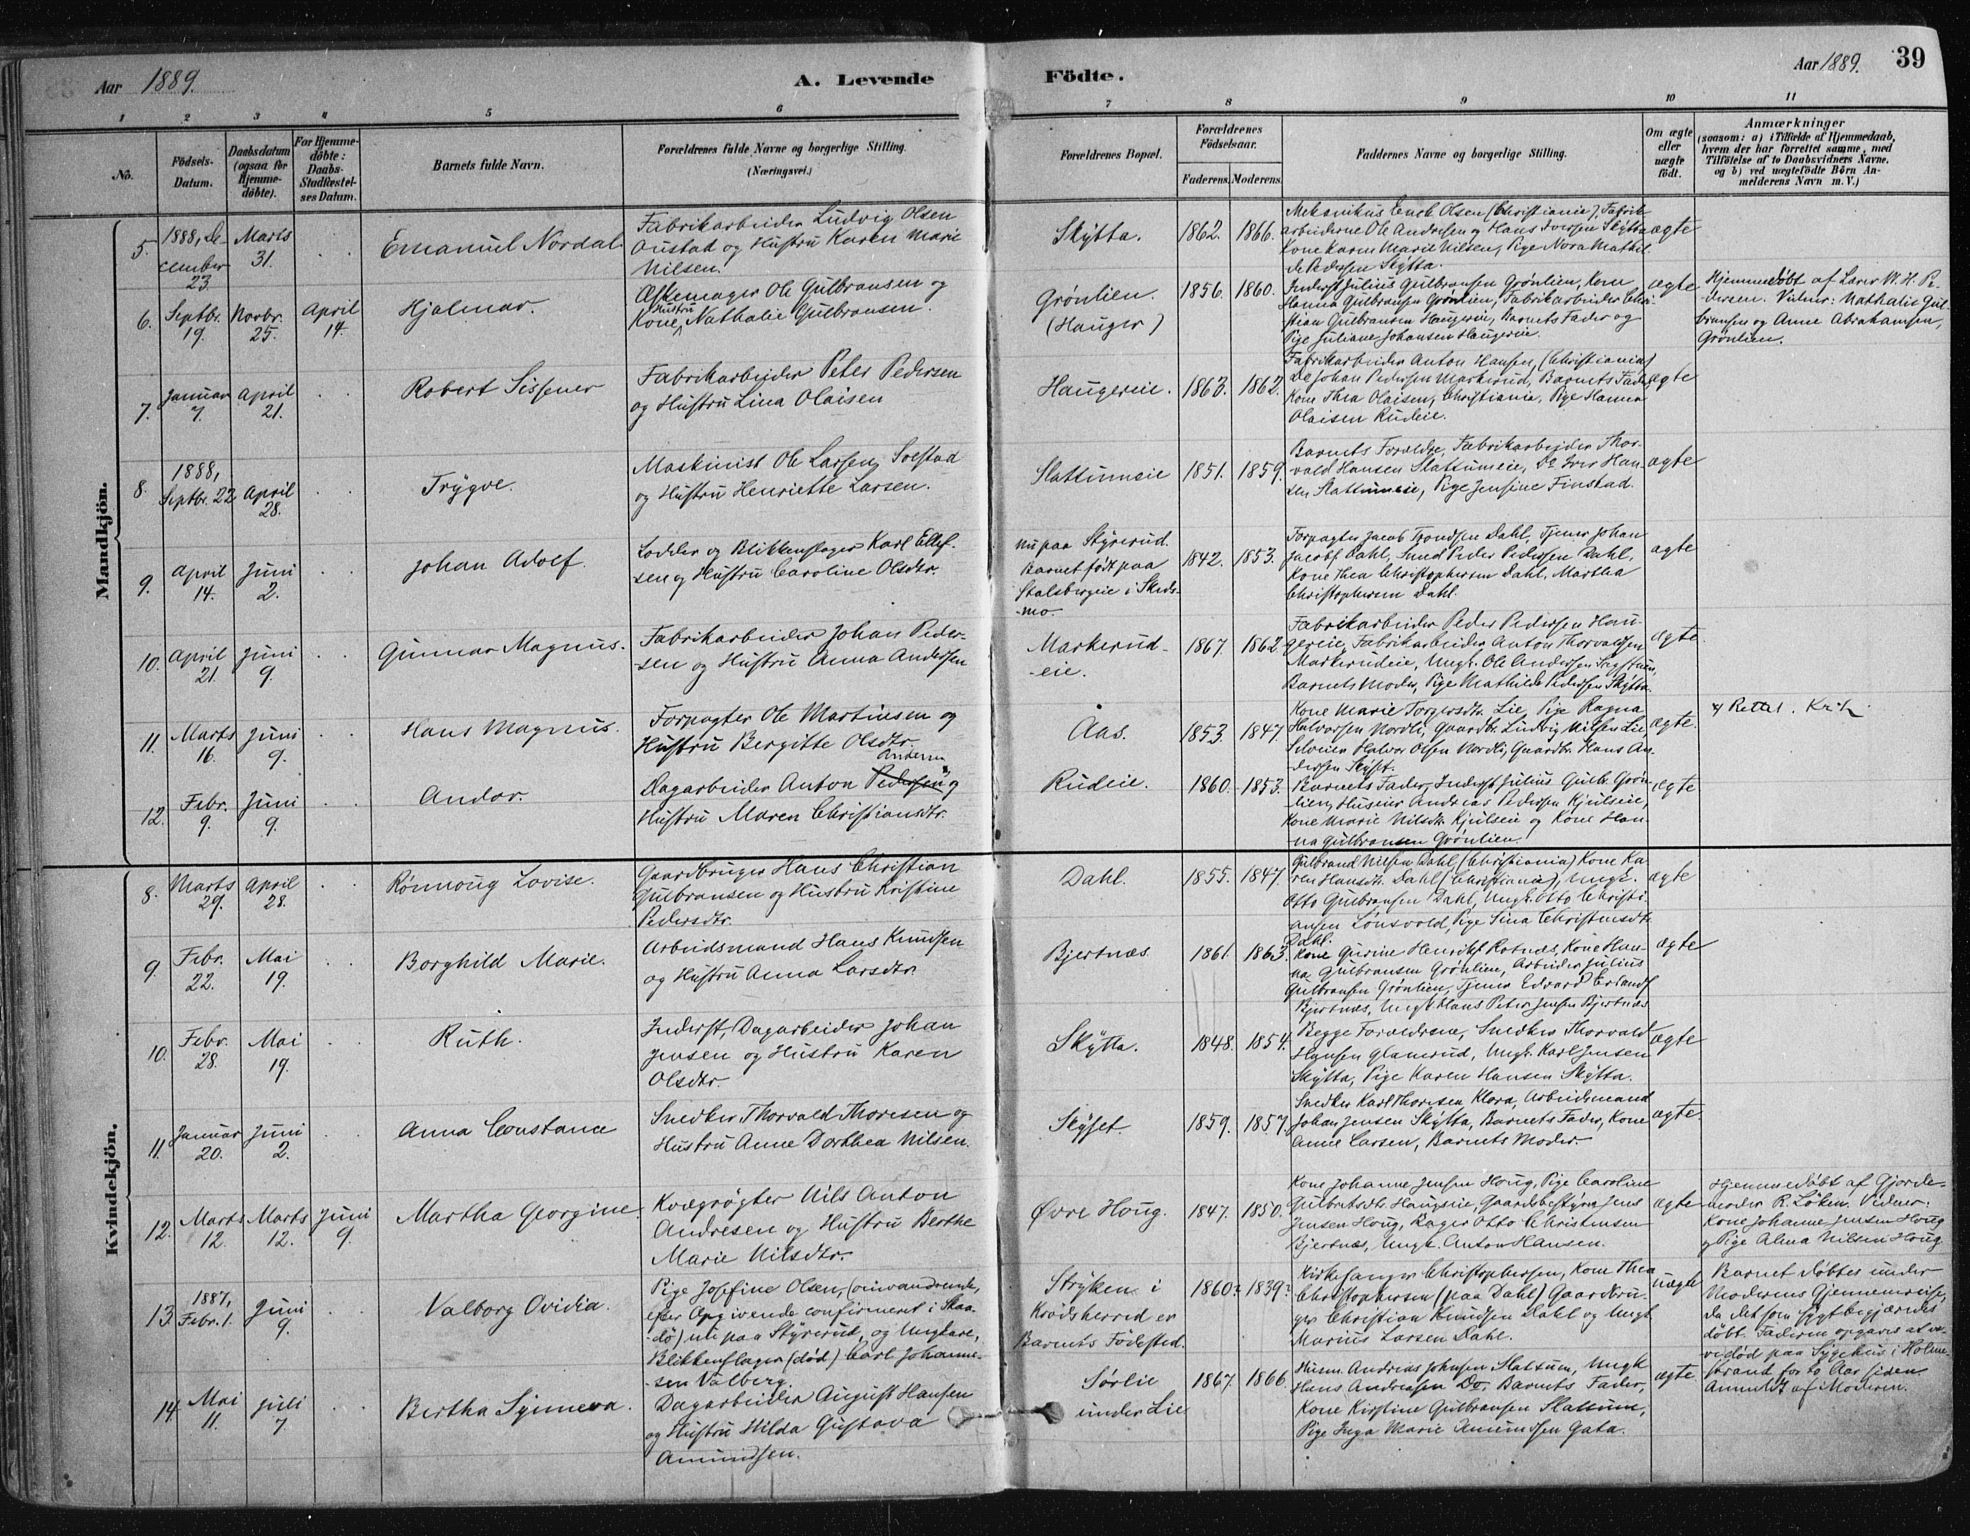 Aar 1889.
A. Levende
Födte.
Aar 1889.
39
1 2 3 4 5 6 7 8 9 10 11
No.
Födsels-
Datum.
Daabsdatum
(ogsaa for
Hjemme-
döbte).
For Hjemme-
döbte:
Daabs-
Stadfæstel-
ses Datum.
Barnets fulde Navn.
Forældrenes fulde Navne og borgerlige Stilling.
(Næringsvei.)
Forældrenes Bopæl.
Forældrenes
Födselsaar.
Faderens.
Moderens.
Faddernes Navne og borgerlige Stilling.
Om ægte
eller
uægte
födt.
Anmærkninger
(saasom: a) i Tilfælde af Hjemmedaab,
hvem der har forrettet samme, med
Tilföielse af to Daabsvidners Navne,
og b) ved uægtefödte Börn An-
melderens Navn m. V.)
Mandkjön.
5.
1888, De-
cember
23.
Marts
31.
Emanuel Nordal
Fabrikarbeider Ludvig Olsen
Austad og Hustru Karen Marie
Nilsen.
Skÿtta.
1862.
1866.
Mekanikus Olsen (Christiania), Fabrik-
arbeiderne Ole Andersen og Hans Skÿtta
Kone Karen Marie Nilsen, Pige Nora Mathil-
de Pedersen Skÿtta.
ægte
6.
Septbr.
19.
Novbr.
25.
April
14.
Hjalmar.
Æskemager Ole Gulbransen og
Hustru
Kone Nathalie Gulbransen.
Grönlien.
(Hauger)
1856.
1860.
Inderst Julius Gulbransen Grönlien, Kone
Hanna Gulbransen Grönlien, Fabrikarbeider Chri-
stian Gulbransen Haugereie, Barnets Fader og
Pige Juliane Johansen Haugereie.
ægte
Hjemmedöbt af Lærer W. H. Pe-
dersen. Vidner: Nathalie Gul-
bransen og Anne Abrahamsen,
Grönlien.
7.
Januar
7.
April
21.
Robert Sissener
Fabrikarbeider Peter Pedersen
og Hustru Lina Olaisen
Haugereie.
1863.
1862.
Fabrikarbeider Anton Hansen, (Christiania)
Do Johan Pedersen Markerud, Barnets Fader,
Kone Thea Olaisen, Christiania, Pige Hanna
Olaisen Rudeie.
ægte
8.
1888,
Septbr. 22
April
28.
Trÿgve.
Maskinist Ole Larsen Solstad
og Hustru Henriette Larsen.
Slattumeie
1851.
1859.
Barnets Forældre, Fabrikarbeider Thor-
vald Hansen Slattumeie, Do Iver Han-
sen Slattumeie, Pige Jensine Finstad.
ægte
9.
April
14.
Juni
2.
Johan Adolf.
Lodder og Blikkenslager Karl Ellef-
sen og Hustru Caroline Olsdtr.
nu paa Stÿrerud.
Barnet födt paa
Stalsbergeie i Skeds-
mo.
1842.
1853.
Forpagter Jacob Trondsen Dahl, Tjener Johan
Jacobs Dahl, Smed Peder Pedersen Dahl,
Kone Thea Christophersen Dahl, Martha
Christophersen Dahl.
ægte
10.
April
21.
Juni
9.
Gunnar Magnus.
Fabrikarbeider Johan Peder-
sen og Hustru Anna Andersen
Markerud-
eie.
1867.
1862
Fabrikarbeider Peder Pedersen Hau-
gereie, Fabrikarbeider Anton Thorvaldsen
Markerudeie, Ungk. Ole Andersen
Barnets Moder, Pige Mathilde Pedersen Skÿtta.
ægte
11.
Marts
16.
Juni
9.
Hans Magnus.
Forpagter Ole Martinsen og
Hustru Bergitte Olsdtr.
Aas.
1853.
1847.
Kone Marie Torgersdtr. Lie, Pige Ragna
Halvorsen Nordli, Gaardbr. Ludvig Nilsen Lie
Selveier Halvor Olsen Nordli, Gaardbr. Hans An-
dersen Skÿset.
ægte.
12.
Febr.
9.
Juni
9.
Andor.
Andersen
Dagarbeider Anton Pedersen og
Hustru Maren Christiansdtr.
Rudeie.
1860.
1853.
Barnets Fader, Inderst Julius Gulb. Grön-
lien, Huseier Andreas Pedersen Kjulseie,
Kone Marie Nilsdtr. Kjulseie og Kone Han-
na Gulbransen Grönlien.
ægte
Kvindekjön.
8.
Marts
29.
April
28.
Rönnoug Lovise.
Gaardbruger Hans Christian
Gulbransen og Hustru Kristine
Pedersdtr.
Dahl.
1855.
1847.
Gulbrand Nilsen Dahl, (Christiania) Kone Ka-
ren Hansdtr. Dahl (Christiania), Ungk.
Otto Gulbransen Dahl, Ungk. Otto Christi-
ansen Lönsvold, Pige Sina Christensdtr.
Dahl.
ægte
9.
Febr.
22.
Mai
19.
Borghild Marie.
Arbeidsmand Hans Knudsen
og Hustru Anna Larsdtr.
Bjertnæs
1861.
1863.
Kone Gurine Henriks. Rotnæs, Kone Han-
na Gulbransen Grönlien, Arbeider Julius
Gulbransen Grönlien, Tjener Edvard
Bjertnæs, Ungk. Hans Peter Jensen Bjertnæs
ægte
10.
Febr.
28.
Mai
19.
Ruth.
Inderst, Dagarbeider Johan
Jensen og Hustru Karen
Olsdtr.
Skÿtta.
1848.
1854.
Begge Forældrene, Snedker Thorvald
Hansen Glamerud, Ungk. Karl Jensen
Skÿtta, Pige Karen Hansen Skÿtta.
ægte
11.
Januar
20.
Juni
2.
Anna Constance
Snedker Thorvald Thoresen og
Hustru Anne Dorthea Nilsen.
Skÿset.
1859.
1857.
Snedker Karl Thoresen Klora, Arbeidsmand
Johan Jensen Skÿtta, Barnets Fader, Kone
Anne Larsen, Barnets Moder.
ægte.
12.
Marts
12.
Marts
12.
Juni
9.
Martha Georgine.
Kvægrögter Nils Anton
Andresen og Hustru Berthe
Marie Nilsdtr.
Övre Houg.
1847.
1850.
Kone Johanne Jensen Houg, Pige Caroline
Gulbrandsdtr. Haugereie, Gaardsbestyrer Jens
Jensen Houg, Bager Otto Christensen
Bjertnæs, Ungk. Anton Hansen.
ægte
Hjemmedöbt af Gjorde-
moder R. Löken. Vidner:
Kone Johanne Jensen Houg
og Pige Alma Nilsen Houg
13.
1887,
Febr. 1.
Juni
9.
Valborg Ovidia.
Pige Josefine Olsen, (omvandrende,
efter Opgivende confirmeret i Skaa-
dö) nu paa Stÿrerud, og Ungkare,
Blikkenslager (död) Carl Johanne-
sen Valberg.
Strÿken i
Krödsherred er
Barnets Födested.
1860?
1839?
Kirkesanger Christophersen, Kone Thea
Christophersen (paa Dahl) Gaardbru-
ger Christian Knudsen Dahl og Ungk.
Marius Larsen Dahl.
uægte
Barnet döbtes under
Moderens Gjennemreise,
da det som sygt begjæredes
döbt. Faderen opgaves at væ-
re död paa Sygehus i Holme-
strand for to Aar siden
Anmeldt af Moderen.
14.
Mai
11.
Juli
7.
Bertha Synneva.
Dagarbeider August Hansen
og Hustru Hilda Gustava
Amundsen.
Sörlie
under Lie
1867.
1866.
Husm. Andreas Johnsen Slattum, Ungk
Hans Andreasen Do, Barnets Fader,
Kone Kirstine Gulbransen Slattum,
Pige Inga Marie Amundsen Gata.
ægte